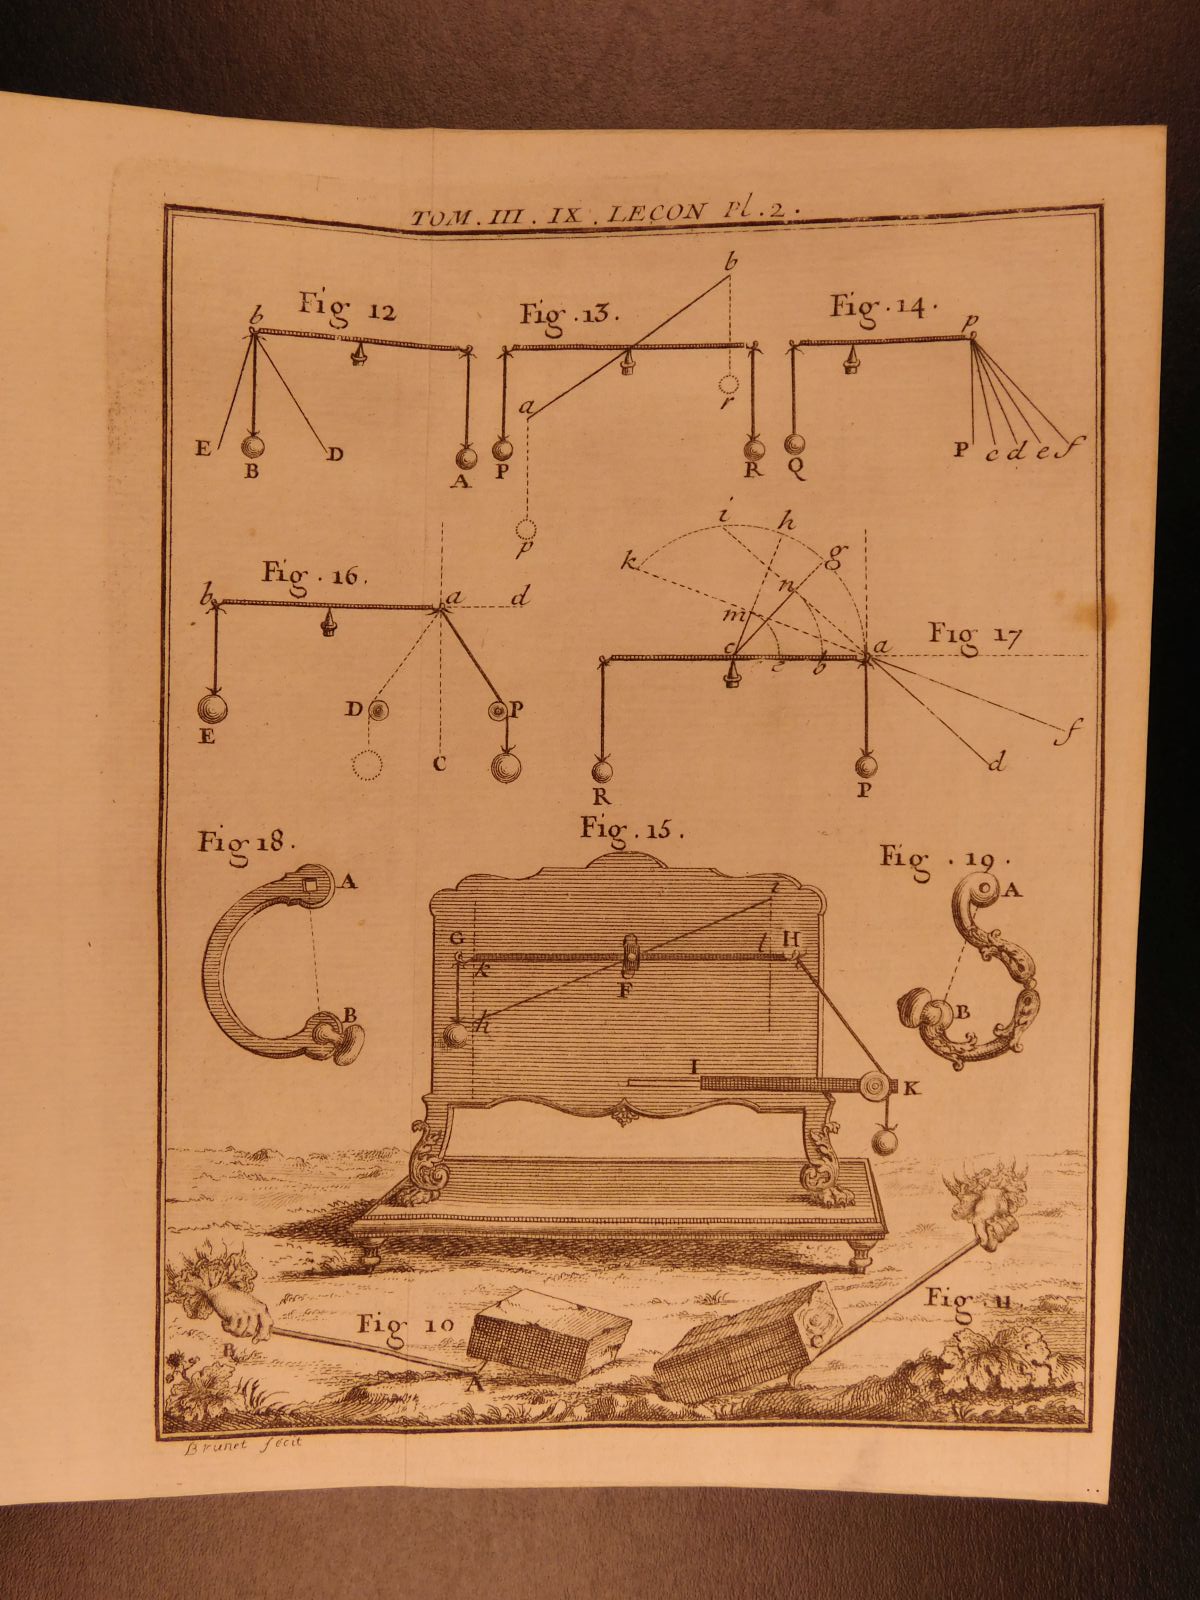 TOM. III. IX. LEÇON Pl. 2.
Fig 12
b
E
B
D
A
Fig. 13.
b
a
r
P
R
p
Fig. 14.
p
Q
P c d e f
Fig. 16.
b
a
d
D
P
E
C
Fig 17
i
h
k
g
n
m
c
e
b
a
f
d
R
P
Fig 18.
A
B
Fig. 15.
G
k
F
l
H
h
I
K
Fig. 19.
A
B
Fig 10
B
A
Fig. 11.
C
Brunet fecit